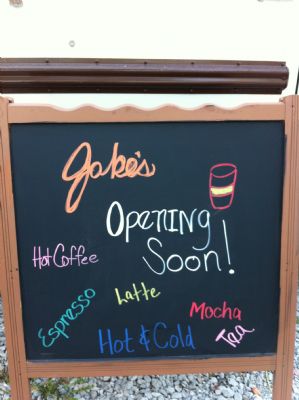 Jake's
Opening
Soon!
Hot Coffee
Latte
Espresso
Mocha
Hot & Cold
Tea